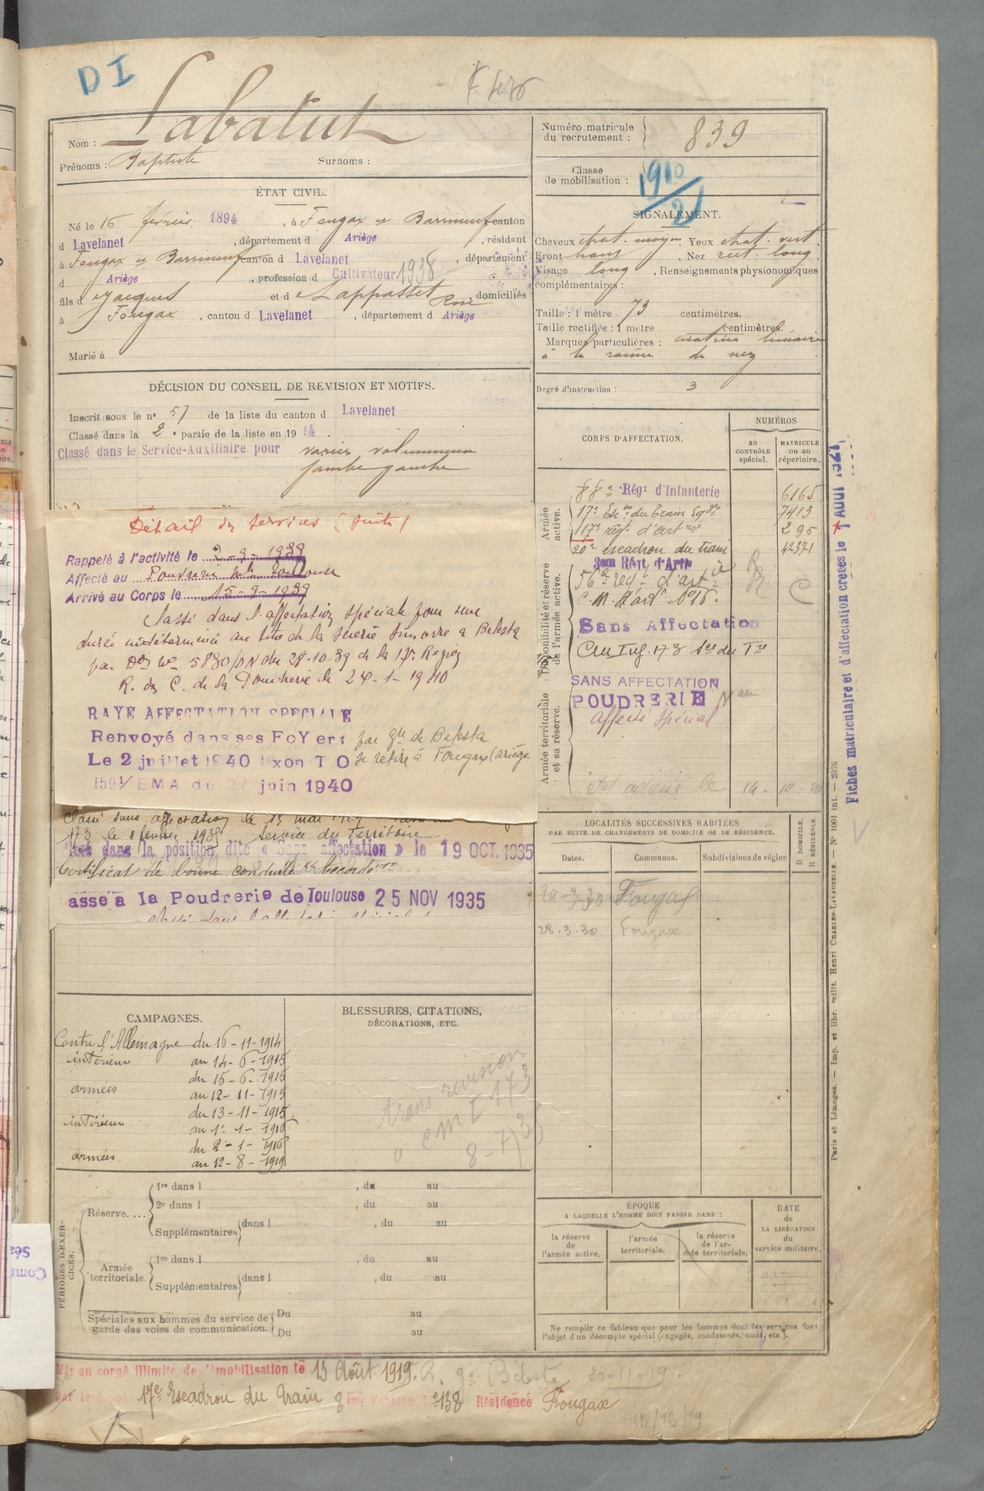 DI
Labatut
Nom :
Prénoms : Baptiste Surnoms :
ÉTAT CIVIL.
Né le 16 février 1894, à Fougax et Barrineuf canton
d Lavelanet, département d Ariège, résidant
à Fougax et Barrineuf canton d Lavelanet, département
d Ariège, profession d Cultivateur 1938
fils d Jacques et d Lappasset Rose domiciliés
à Fougax, canton d Lavelanet, département d Ariège
Marié à
DÉCISION DU CONSEIL DE REVISION ET MOTIFS.
Inscrit sous le n° 57 de la liste du canton d Lavelanet
Classé dans la 2e partie de la liste en 1914.
Classé dans le Service-Auxiliaire pour varices volumineuses
jambe gauche
Détail des services (suite)
Rappelé à l'activité le 2-9-1939
Affecté au Poudrerie Nle Toulouse
Arrivé au Corps le 15-9-1939
Classé dans l'affectation spéciale pour une
durée indéterminée au titre de la Scierie à Belesta
par 5830/ du 28-10-39 de la 17e Region
R. des C. de la Poudrerie le 24-1-1940
RAYE AFFECTATION SPECIALE
Renvoyé dans ses FoYers par de Belesta
Le 2 juillet 1940 se retire à Fougax (ariège
EMA du 22 juin 1940
Classé sans affectation le 15 mai
173 le 1 février 1935 Service du Territoire
dans la position dite « Sans affectation » le 19 OCT. 1935
Certificat de bonne conduite accordé
assé à la Poudrerie de Toulouse 25 NOV 1935
CAMPAGNES.
Contre l'Allemagne du 16-11-1914
intérieur au 14-6-1915
du 15-6-1915
armées au 12-11-1915
du 13-11-1915
intérieur au 1-1-1916
du 2-1-1916
armées au 12-8-1919
BLESSURES, CITATIONS,
DÉCORATIONS, ETC.
trans revision
a CMI 173
8-7/35
PÉRIODES D'EXERCICES.
Réserve....
1re dans l , du au
2e dans l , du au
Supplémentaires dans l , du au
Armée territoriale.
1re dans l , du au
Supplémentaires dans l , du au
Spéciales aux hommes du service de garde des voies de communication.
Du au
Du au
Mis en congé illimité de démobilisation le 13 Août 1919. Bélesta 20-11-19.
17e Escadron du Train 138 Résidence Fougax
Numéro matricule
du recrutement : 839
Classe
de mobilisation : 1910/2
SIGNALEMENT.
Cheveux chat. moyen Yeux chat. vert.
Front haut, Nez rect. long
Visage long, Renseignements physionomiques
complémentaires :
Taille : 1 mètre 73 centimètres.
Taille rectifiée : 1 mètre centimètres.
Marques particulières : cicatrice linéaire
à la racine du nez
Degré d'instruction : 3
CORPS D'AFFECTATION.
NUMÉROS
AU CONTRÔLE spécial.
MATRICULE ou au répertoire.
Armée active.
88e Régt d'Infanterie 6165
17e Escon du train Eqges 7413
117e régt d'artrie 295
20e escadron du train 42371
Disponibilité et réserve de l'armée active.
56e régt d'artie
C. M. d'art. N°16.
Sans Affectation
173
Armée territoriale et sa réserve.
SANS AFFECTATION
POUDRERIE
affecté spécial
LOCALITÉS SUCCESSIVES HABITÉES
PAR SUITE DE CHANGEMENTS DE DOMICILE OU DE RÉSIDENCE.
Dates. Communes. Subdivisions de région
D. DOMICILE. R. RÉSIDENCE
20-3-30 Fougax
28-3-30 Fougax
ÉPOQUE
A LAQUELLE L'HOMME DOIT PASSER DANS :
la réserve de l'armée active.
l'armée territoriale.
la réserve de l'armée territoriale.
DATE de LA LIBÉRATION du service militaire.
Ne remplir ce tableau que pour les hommes dont les services font
l'objet d'un décompte spécial (engagés, condamnés, omis, etc.).
Fiches matriculaire et d'affectation créées le AOUT 1921
Paris et Limoges. — Imp. et libr. milit. Henri CHARLES-LAVAUZELLE.